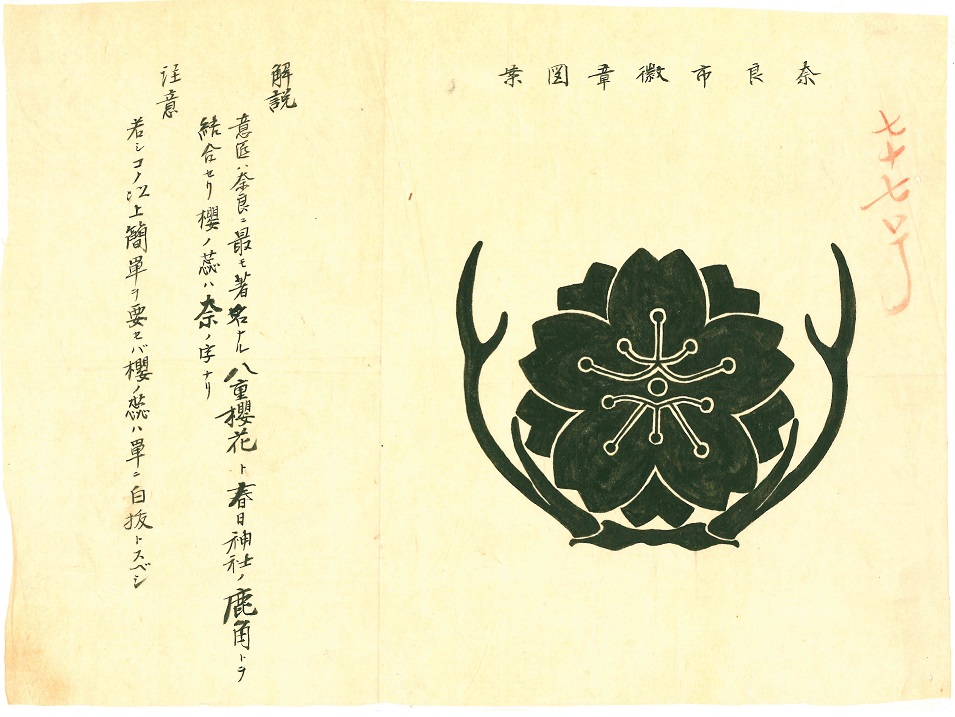 奈良市徽章図案
七十七号
解説
意匠ハ奈良ニ最モ著名ナル八重櫻花ト春日神社ノ鹿角トヲ
結合セリ櫻ノ蕊ハ奈ノ字ナリ
注意
若シコノ以上簡単ヲ要セバ櫻ノ蕊ハ單ニ白抜トスベシ